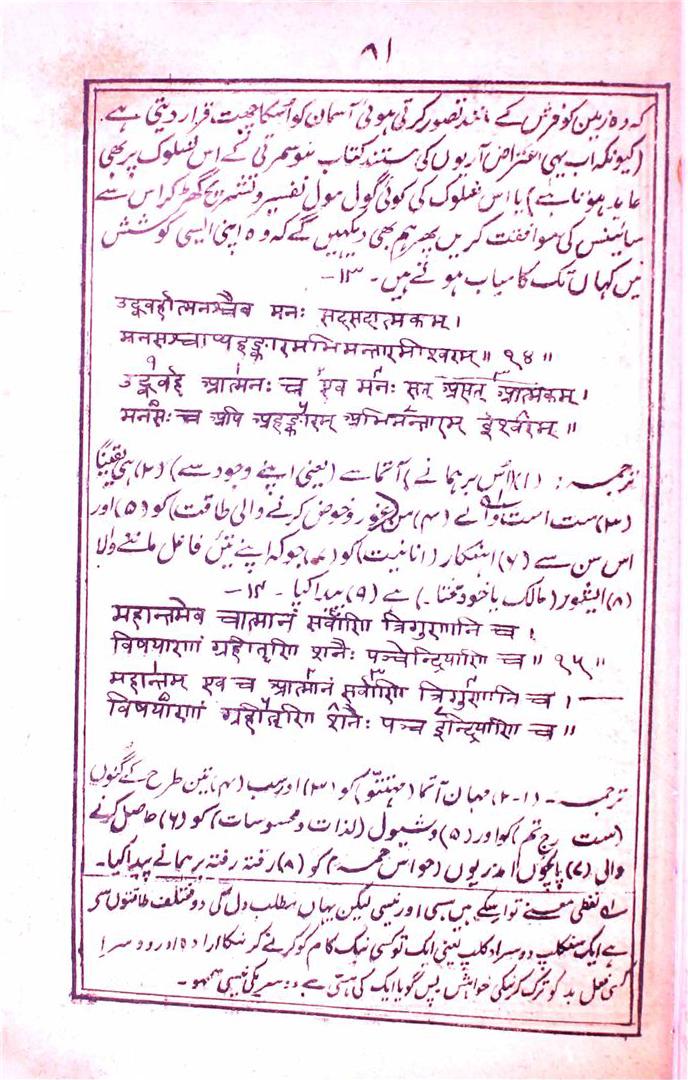 ۸۱
کہ وہ زمین کو فرش کے مانند تصور کرتی ہوئی آسمان کو اُسکا چھت قرار دیتی ہے۔
(کیونکہ اب یہی اعتراض آریوں کی مستند کتاب منوسمرتی کے اس شلوک پر بھی
عاید ہوتا ہے) یا اس شلوک کی کوئی گول مول تفسیر و تشریح گھڑ کر اس سے
سائینس کی موافقت کریں پھر ہم بھی دیکھیں گے کہ وہ اپنی ایسی کوشش
میں کہاں تک کامیاب ہوتے ہیں۔ ۱۳۔
उद्ववर्हात्मनश्चैव मनः सदसदात्मकम्।
मनसश्चाप्यहङ्कारमभिमन्तारमीश्वरम्॥ १४॥
उद्ववर्ह आत्मनः च एव मनः सत् असत् आत्मकम्।
मनसः च अपि अहङ्कारम् अभिमन्तारम् ईश्वरम्॥
ترجمہ: (۱) اُس برہما نے) آتما سے (یعنی اپنے وجود سے) (۲) ہی یقیناً
(۳) ست است والے (۴) من (غور و خوض کرنے والی طاقت) کو (۵) اور
اس من سے (۶) اہنکار (انانیت) کو (۷) جو کہ اپنے تئیں فاعل ماننے والا
(۸) ایشور (مالک یا خود مختار) ہے (۹) پیدا کیا۔ ۱۴۔
महान्तमेव चात्मानं सर्वाणि त्रिगुणानि च।
विषयाणां ग्रहीतृणि शनैः पञ्चेन्द्रियाणि च॥ १५॥
महान्तम् एव च आत्मानं सर्वाणि त्रिगुणानि च।
विषयाणां ग्रहीतृणि शनैः पञ्च इन्द्रियाणि च॥
ترجمہ۔ (۱-۲) مہان آتما (مہتتو) کو (۳) اور سب (۴) تین طرح کے گنوں
(ست رج تم) کو اور (۵) وشیوں (لذات و محسوسات) کو (۶) حاصل کرنے
والی (۷) پانچوں اندریوں (حواس خمسہ) کو (۸) رفتہ رفتہ برہما نے پیدا کیا۔
لہ لفظی معنے تو اسکے ہیں ہستی اور نیستی لیکن یہاں مطلب دل کی دو مختلف طاقتوں سے
ہے ایک سنکلپ دوسرا وکلپ یعنی ایک تو کسی نیک کام کو کرنے کرنیکا ارادہ اور دوسرا
کسی فعل بد کو ترک کرنیکی خواہش پس گویا ایک کی ہستی ہے دوسریکی نیستی سمجھو۔